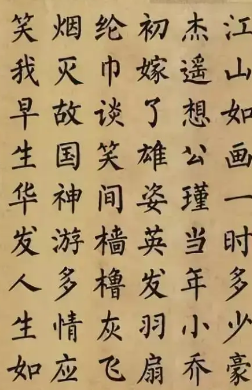 江山如画一时多少豪
杰遥想公瑾当年小乔
初嫁了雄姿英发羽扇
纶巾谈笑间樯橹灰飞
烟灭故国神游多情应
笑我早生华发人生如